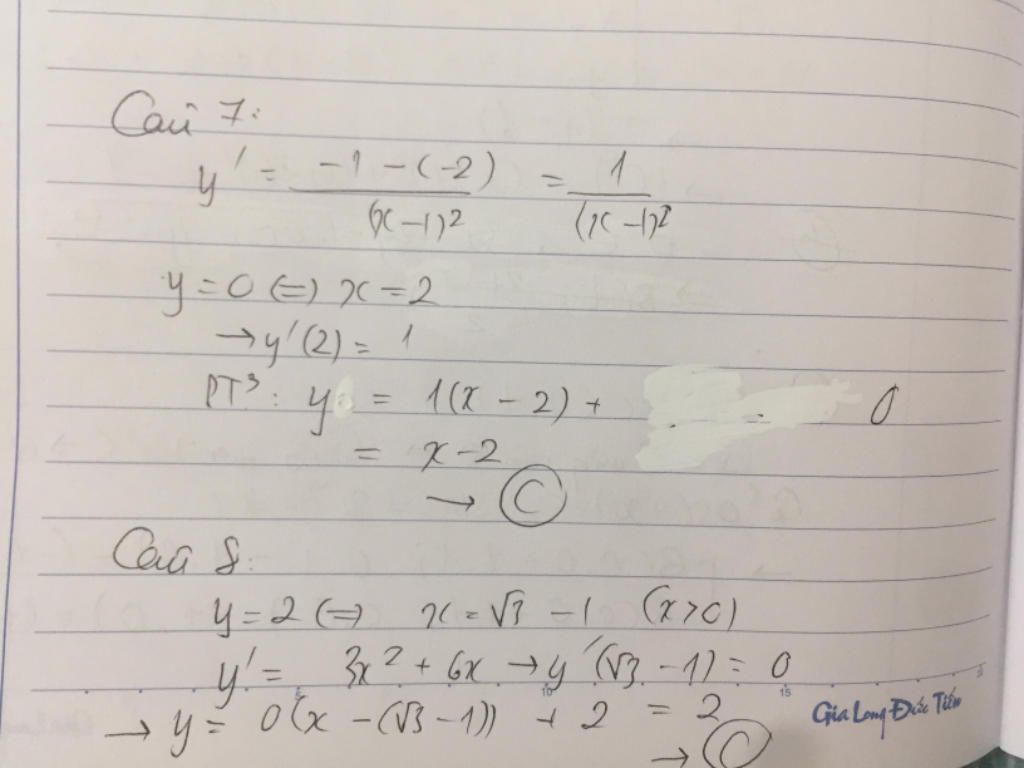 Câu 7:
y' = -1 - (-2) / (x-1)² = 1 / (x-1)²
y = 0 (=) x = 2
→ y'(2) = 1
PT³: y = 1(x - 2) + 0
= x - 2
→ C
Câu 8:
y = 2 (=) x = √3 - 1 (x>0)
y' = 3x² + 6x → y'(√3 - 1) = 0
→ y = 0(x - (√3 - 1)) + 2 = 2
→ C
5 10 15
Gia Long Đức Tiến